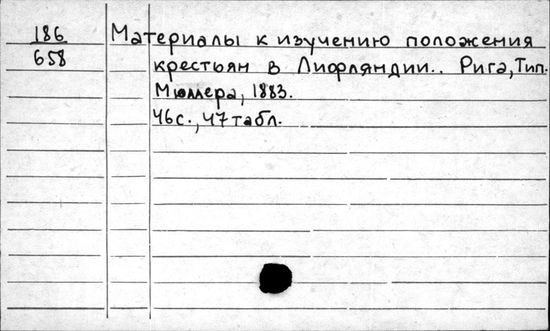 186 Материалы к изучению положения
658 крестьян в Лифляндии.. Рига, Тип.
Мюллера, 1883.
46с., 47табл.